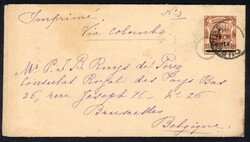 Imprimé.
Nº 3
Via Colombo
Mr P. J. R. Ruys de Perez
Consulat Royal des Pays Bas
26, rue Joseph II - Nº 26
Bruxelles
Belgique